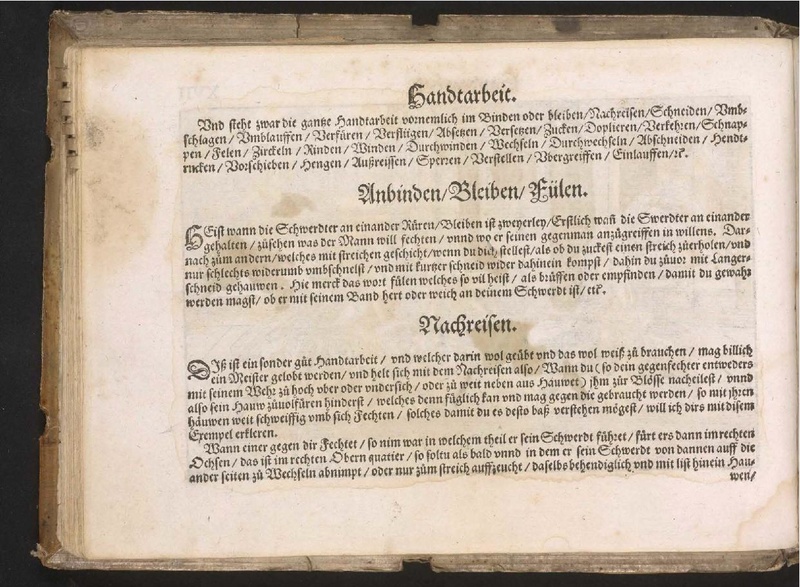 Handtarbeit.
Vnd steht zwar die gantze Handtarbeit vornemlich im Binden oder bleiben/Nachreisen/Schneiden/ Vmb-
schlagen/ Vmblauffen/ Verfüren/ Verfliigen/ Absetzen/ Versetzen/ Zucken/ Doplieren/ Verkehren/ Schnap-
pen/ Felen/ Zirckeln/ Rinden/ Winden/ Durchwinden/ Wechseln/ Durchwechseln/ Abschneiden/ Hendt-
rucken/ Vorschieben/ Hengen/ Außreissen/ Sperren/ Verstellen/ Vbergreiffen/ Einlauffen/ꝛc.
Anbinden/Bleiben/Fülen.
EIst wann die Schwerdter an einander Rüren/Bleiben ist zweyerley/Erstlich wañ die Swerdter an einander
gehalten/ züsehen was der Mann will fechten/ vnnd wo er seinen gegenman anzügreiffen in willens. Dar-
nach zům andern/welches mit streichen geschicht/wenn du dich stellest/als ob du zuckest einen streich züerholen/vnd
nur schlechts widerumb vmbschnelst/ vnd mit kurtzer schneid wider dahinein kompst/ dahin du züuor mit Langer-
schneid gehauwen. Hie merck das wort fülen welches so vil heist/ als brüffen oder empfinden/ damit du gewahr
werden magst/ ob er mit seinem Band hert oder weich an deinem Schwerdt ist/ etc.
Nachreisen.
DIß ist ein sonder güt Handtarbeit/ vnd welcher darin wol geübt vnd das wol weiß zü brauchen/ mag billich
ein Meister gelobt werden/ vnd helt sich mit dem Nachreisen also/ Wann du (so dein gegenfechter entweders
mit seinem Wehr zü hoch vber oder vndersich/ oder zü weit neben aus Hauwet) jhm zür Blösse nacheilest/ vnnd
also sein Hauw züuolfüren hinderst/ welches denn füglich kan vnd mag gegen die gebraucht werden/ so mit jhren
häuwen weit schweiffig vmb sich Fechten/ solches damit du es desto baß verstehen mögest/ will ich dirs mit disem
Exempel erkleren.
Wann einer gegen dir Fechtet/ so nim war in welchem theil er sein Schwerdt führet/ fürt ers dann im rechten
Ochsen/ das ist im rechten Obern quatier/ so soltu als bald vnnd in dem er sein Schwerdt von dannen auff die
ander seiten zü Wechseln abnimpt/ oder nur züm streich auffzeucht/ daselbs behendiglich vnd mit list hinein Hau-
wen/